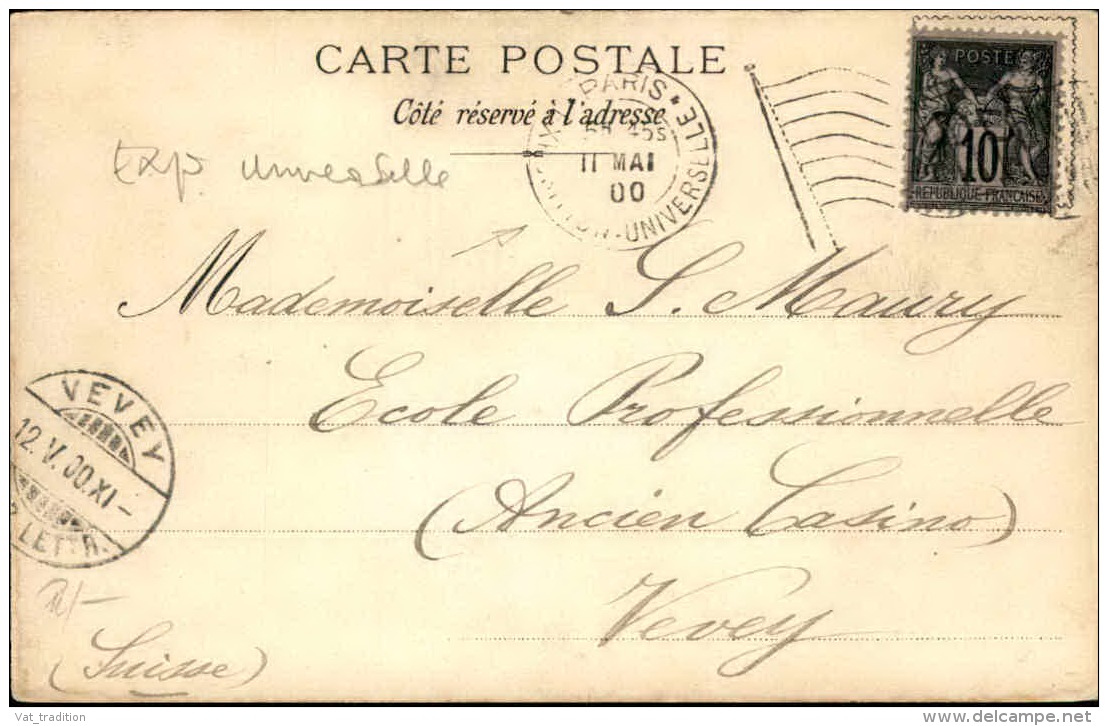 CARTE POSTALE
Côté réservé à l'adresse
POSTE
10
REPUBLIQUE FRANÇAISE
PARIS
11 MAI
00
EXPOSITION-UNIVERSELLE
Exp. Universelle
Mademoiselle S. Maury
Ecole Professionnelle
(Ancien Casino)
Vevey
(Suisse)
VEVEY
12.V.00.XI-
LETTR.
Vat_tradition
delcampe.net